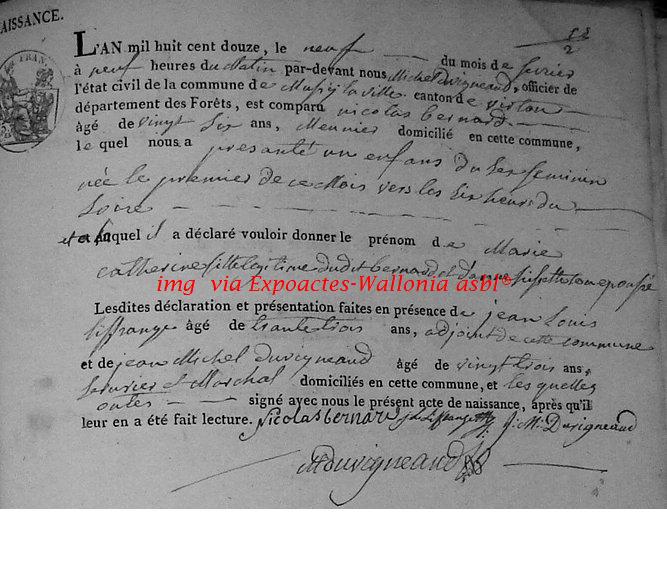 AISSANCE.
L'AN mil huit cent douze, le neuf du mois de fevrier
à neuf heures du Matin par-devant nous Michel duvigneaud, officier de
l'état civil de la commune de Mussy la ville canton de virton
département des Forêts, est comparu nicolas bernard
âgé de vingt six ans, Meunier domicilié en cette commune,
le quel nous a presanté un enfans du sex feminin
née le premier de ce Mois vers les six heurs du
Soire
et auquel il a déclaré vouloir donner le prénom de Marie
catherine fille legitime dudit bernard et d'anne epousse
img via Expoactes-Wallonia asbl©
Lesdites déclaration et présentation faites en présence de jean Louis
liffrange âgé de trante trois ans, adjoint de cette commune
et de jean Michel duvigneaud âgé de vingt trois ans,
serurier et Marchal domiciliés en cette commune, et les quelles
ontes signé avec nous le présent acte de naissance, après qu'il
leur en a été fait lecture. Nicolas bernar J: M: Duvigneaud
Mduvigneaud